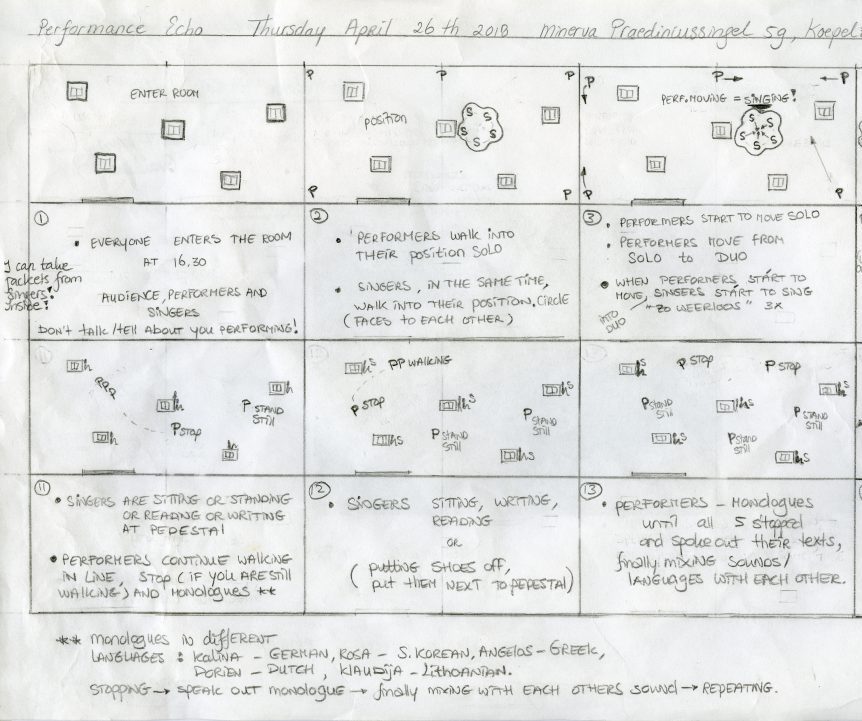 Performance Echo Thursday April 26th 2018 Minerva Praediniussingel 59, Koepel
ENTER ROOM
P P P
position
S S S S S
P P
P P → ← P
PERF. MOVING = SINGING!
S S S S S
P P
①
• EVERYONE ENTERS THE ROOM
AT 16.30
AUDIENCE, PERFORMERS AND
SINGERS
DON'T talk/tell ABOUT YOU PERFORMING!
I can take
jackets from
singers!
inside!
②
• PERFORMERS WALK INTO
THEIR POSITION SOLO
• SINGERS, IN THE SAME TIME,
WALK INTO THEIR POSITION, CIRCLE
(FACES TO EACH OTHER)
③
• PERFORMERS START TO MOVE SOLO
• PERFORMERS MOVE FROM
SOLO to DUO
• WHEN PERFORMERS START TO
MOVE, SINGERS START TO SING
"ZO WEERLOOS" 3X
INTO
DUO
PPP
P STOP
P STAND
STILL
PP WALKING
P STOP
P STAND
STILL
P STAND
STILL
P STOP
P STOP
P STAND
STILL
P STAND
STILL
P STAND
STILL
⑪
• SINGERS ARE SITTING OR STANDING
OR READING OR WRITING
AT PEDESTAL
• PERFORMERS CONTINUE WALKING
IN LINE, STOP (IF YOU ARE STILL
WALKING) AND MONOLOGUES **
⑫
• SINGERS SITTING, WRITING,
READING
OR
(putting SHOES off,
put them NEXT TO PEDESTAL)
⑬
• PERFORMERS - MONOLOGUES
until all 5 stopped
and spoke out their texts,
finally mixing sounds/
LANGUAGES WITH EACH OTHER.
** monologues in different
LANGUAGES : Kalina - GERMAN, ROSA - S. KOREAN, ANGELOS - GREEK,
DORIEN - DUTCH, Klaudija - Lithoanian.
STOPPING → SPEAK OUT MONOLOGUE → finally MIXING WITH EACH OTHERS SOUND → REPEATING.